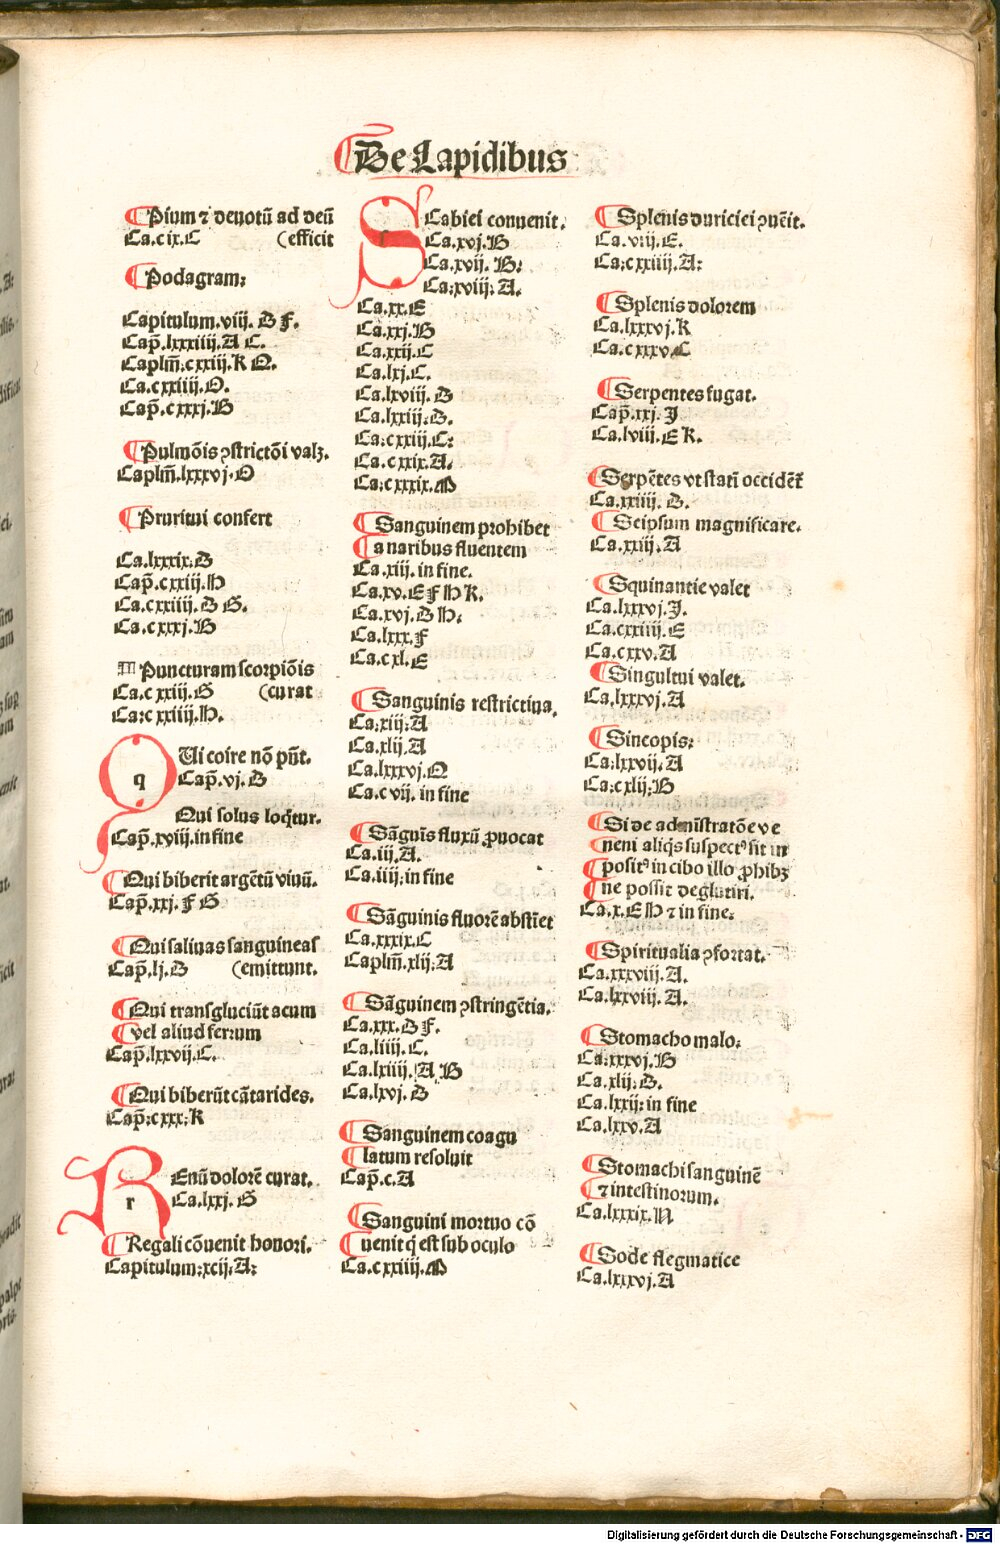 De Lapidibus
Pium ⁊ deuotū ad deū
Ca.cix.C (efficit
Podagram:
Capitulum.viij. B F.
Cap̄.lxxxiiij.A C.
Caplm̄.cxxiij.K O.
Ca.cxxiiij.O.
Cap̄.cxxxj.B
Pulmōis ꝯstrictōi valꝫ.
Caplm̄.lxxxvj.O
Pruritui confert
Ca.lxxxix.B
Cap̄.cxxiij.H
Ca.cxxiiij.B G.
Ca.cxxxj.B
Puncturam scorpiōis
Ca.cxxiij.G (curat
Ca:cxxiiij.H.
q Ui coire nō pn̄t.
Cap̄.vj.B
Qui solus loq̄tur.
Cap̄.xviij.in fine
Qui biberit argētū viuū.
Cap̄.xxj.F G
Qui saliuas sanguineas
Cap̄.lj.B (emittunt.
Qui transgluciūt acum
vel aliud ferrum
Cap̄.lxxvij.C.
Qui biberūt cātarides.
Cap̄:cxxx:K
r Enū dolorē curat.
Ca.lxxj.G
Regali cōuenit honori.
Capitulum:xcij.A:
S Cabiei conuenit.
Ca.xvj.B
Ca.xvij.B:
Ca:xviij:A.
Ca.xx.E
Ca.xxj.B
Ca.xxij.C
Ca.lxj.C.
Ca.lxviij.B
Ca.lxxiij:B.
Ca:cxxiij.C:
Ca.cxxix.A.
Ca:cxxxix.M
Sanguinem prohibet
a naribus fluentem
Ca.xiij.in fine.
Ca.xv.E F H K.
Ca.xvj.B H:
Ca.lxxx.F
Ca.cxl.E
Sanguinis restrictiua.
Ca:xiij:A
Ca.xlij.A
Ca.lxxxvj.O
Ca.cvij.in fine
Sāguis fluxū ꝓuocat
Ca.iij.A.
Ca.iiij:in fine
Sāguinis fluorē abstīet
Ca.xxxix.C
Caplm̄.xlij:A
Sāguinem ꝯstringētia.
Ca.xxx.B F.
Ca.liiij.C.
Ca.lxiiij.A B
Ca.lxvj.B
Sanguinem coagu
latum resoluit
Cap̄.c.A
Sanguini mortuo cō
uenit q̄ est sub oculo
Ca.cxxiiij.M
Splenis duriciei ꝯuēit.
Ca.viij.E.
Ca:cxxiiij.A:
Splenis dolorem
Ca.lxxxvj.K
Ca.cxxxv.C
Serpentes fugat.
Cap̄.xxj.J
Ca.lviij.E K.
Serpētes vt statī occidēt
Ca.xxiiij.B.
Seipsum magnificare.
Ca.xxiij.A
Squinantie valet
Ca.lxxxvj.J.
Ca.cxxiiij.E
Ca.cxxv.A
Singultui valet.
Ca.lxxxvj.A
Sincopis:
Ca:lxxvij.A
Ca:cxlij:B
Si de adminīstratōe ve
neni aliq̄s suspectꝰ sit ut
positꝰ in cibo illo ꝓhibꝫ
ne possit deglutiri.
Ca.x.E H ⁊ in fine:
Spiritualia ꝯfortat.
Ca.xxxviij.A.
Ca.lxxviij.A.
Stomacho malo:
Ca:xxxvj.B
Ca.xlij:B.
Ca.lxxij:in fine
Ca.lxxv.A
Stomachi sanguinē
⁊ intestinorum.
Ca.lxxxix.N
Sode flegmatice
Ca.lxxxvj.A
Digitalisierung gefördert durch die Deutsche Forschungsgemeinschaft - DFG